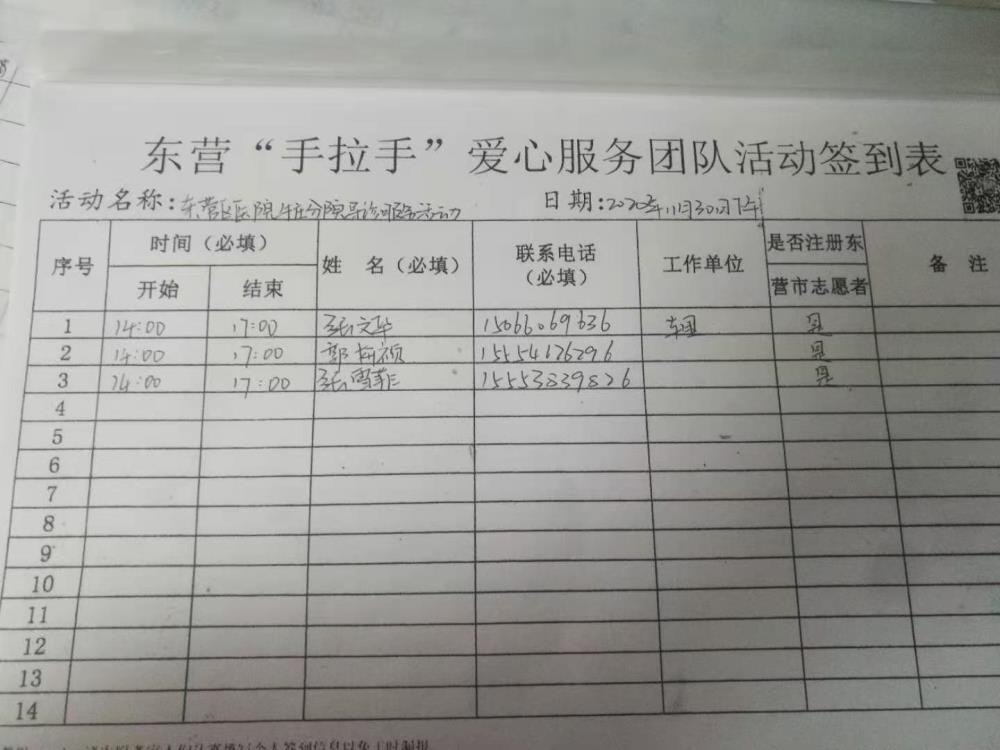 东营“手拉手”爱心服务团队活动签到表
活动名称:东营区医院牛庄分院导诊服务活动 日期:2020年11月30日下午
序号 时间(必填) 姓 名(必填) 联系电话(必填) 工作单位 是否注册东营市志愿者 备 注
开始 结束
1 14:00 17:00 张文华 15066069636 是
2 14:00 17:00 15554126296 是
3 14:00 17:00 张雪菲 15553839826 是
4
5
6
7
8
9
10
11
12
13
14